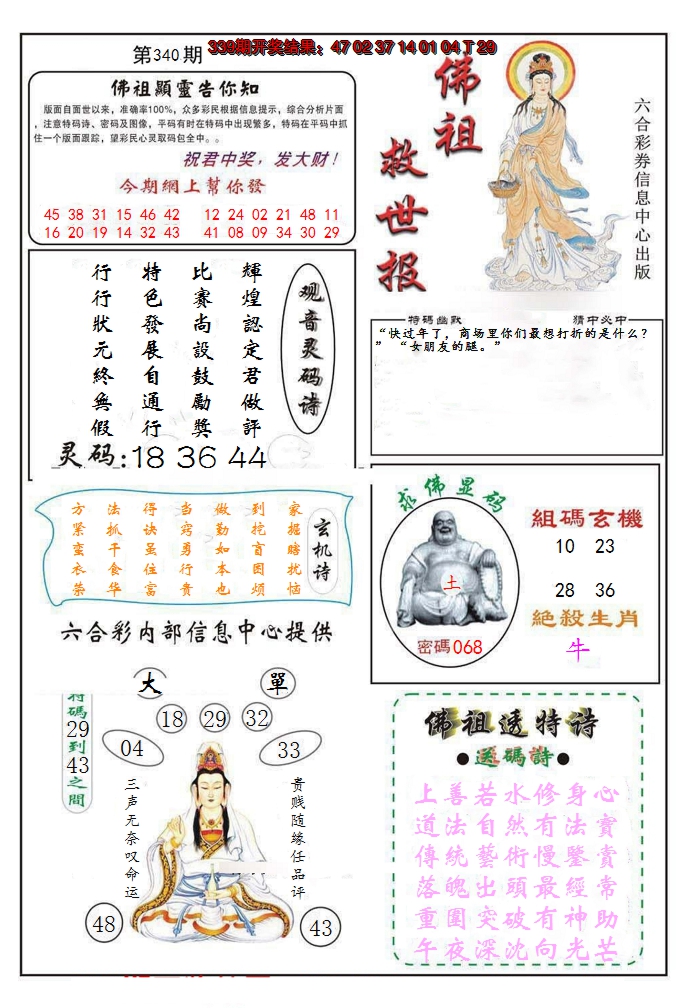 第340期
339期开奖结果：47 02 37 14 01 04 T 29
佛祖顯靈告你知
版面自面世以来，准确率100%，众多彩民根据信息提示，综合分析片面
，注意特码诗、密码及图像，平码有时在特码中出现繁多，特码在平码中抓
住一个版面跟踪，望彩民心灵取码包全中。。
祝君中奖，发大财！
今期網上幫你發
45 38 31 15 46 42 12 24 02 21 48 11
16 20 19 14 32 43 41 08 09 34 30 29
佛祖救世报
六合彩券信息中心出版
观音灵码诗
輝煌認定君做評
比賽尚設鼓勵獎
特色發展自通行
行行狀元終無假
灵码:18 36 44
特碼幽默 猜中必中
“快过年了，商场里你们最想打折的是什么？
” “女朋友的腿。”
玄机诗
家掘瞎扰恼
到挖盲困烦
做勤如本也
当窍勇行贵
得诀虽住富
法抓干食华
方紧蛮衣荣
六合彩内部信息中心提供
求佛显码
土
密碼068
組碼玄機
10 23
28 36
絕殺生肖
牛
大
單
特碼29到43之間
18 29 32
04
33
三声无奈叹命运
贵贱随缘任品评
48
43
佛祖透特诗
●送碼詩●
上善若水修身心
道法自然有法寶
傳統藝術慢鑒賞
落魄出頭最經常
重圍突破有神助
午夜深沈向光芒